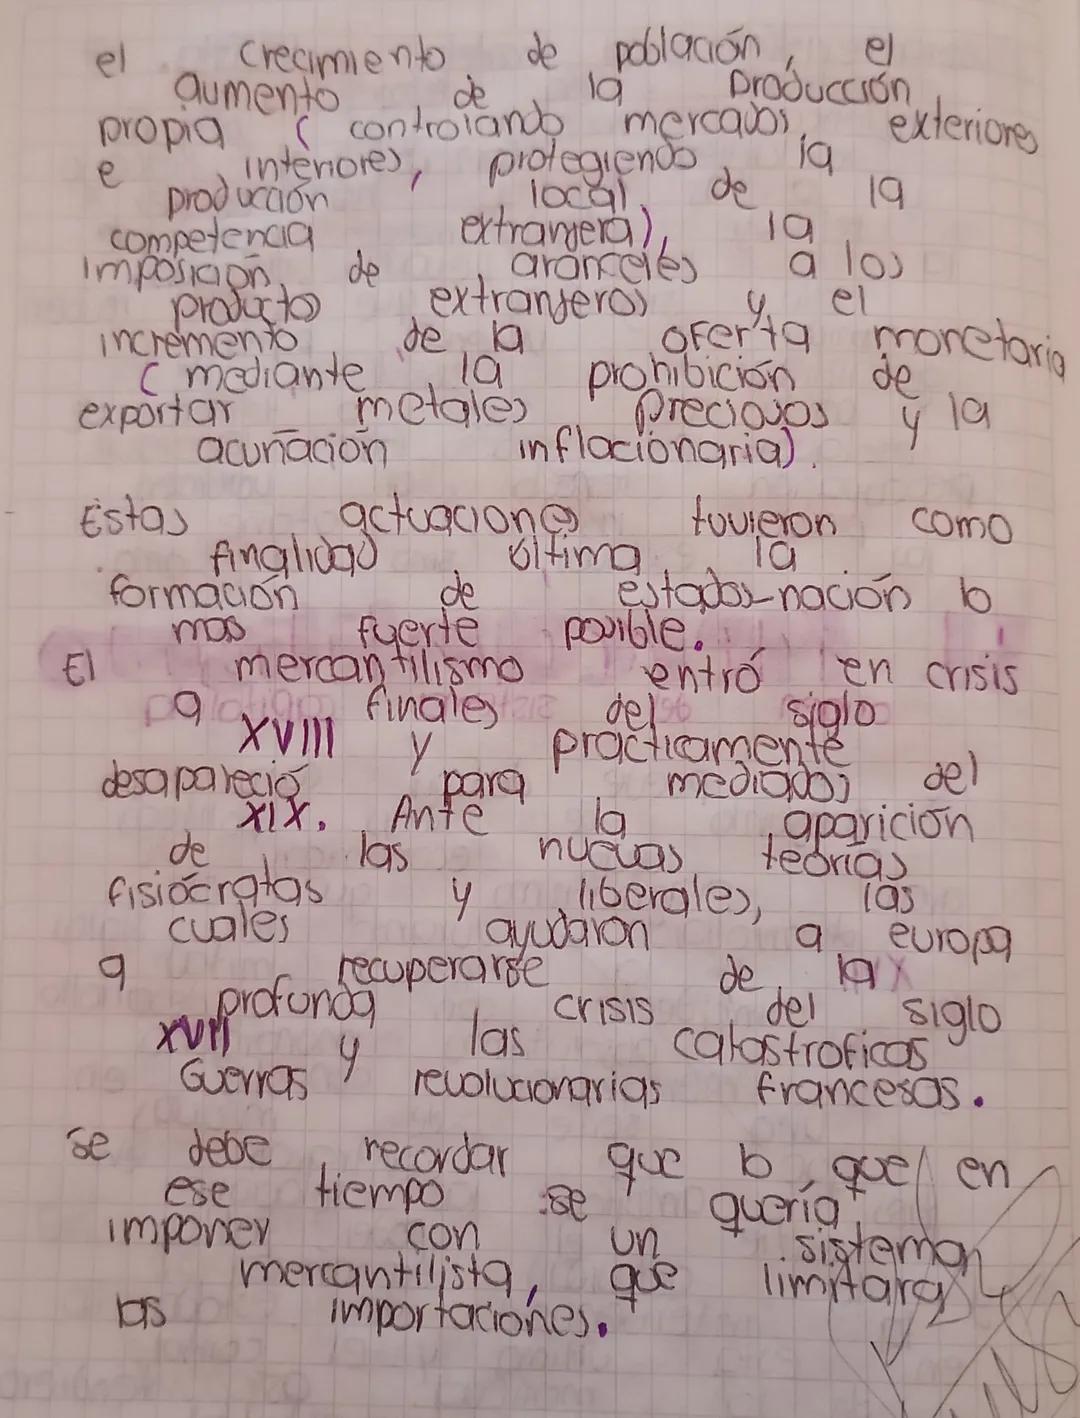 el crecimiento de población, el
aumento de la producción
propia (controlando mercados, exteriores
e interiores, protegiendo la
producción local de la
competencia extranjera), la
imposición de aranceles a los
productos extranjeros y el
incremento de la oferta monetaria
(mediante la prohibición de
exportar metales preciosos y la
acuñación inflacionaria).
Estas actuaciones tuvieron como
finalidad última la
formación de estados-nación lo
mas fuerte posible.
El mercantilismo entró en crisis
a finales del siglo
XVIII y prácticamente
desapareció para mediados del
XIX. Ante la aparición
de las nuevas teorías
fisiócratas y liberales, las
cuales ayudaron a europa
a recuperarse de la
profunda crisis del siglo
XVII y las catastroficas
Guerras revolucionarias francesas.
Se debe recordar que lo que en
ese tiempo se quería
imponer con un sistema
mercantilista, que limitara
las importaciones.